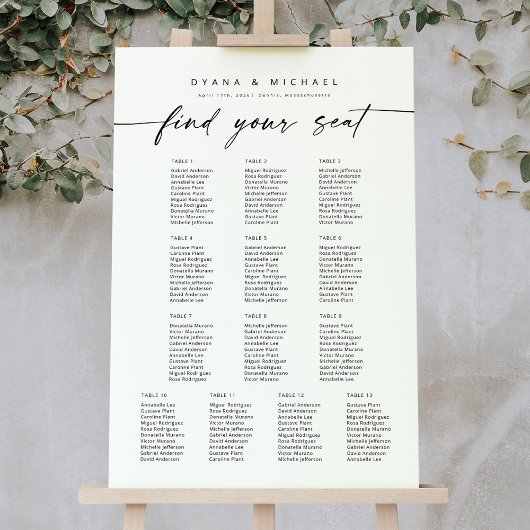 DYANA & MICHAEL
April 17th, 2026 | Dennis, Massachusetts
find your seat
TABLE 1
Gabriel Anderson
David Anderson
Annabelle Lee
Gustave Plant
Caroline Plant
Miguel Rodriguez
Rosa Rodriguez
Donatella Murano
Victor Murano
Michelle Jefferson
TABLE 2
Miguel Rodriguez
Rosa Rodriguez
Donatella Murano
Victor Murano
Michelle Jefferson
Gabriel Anderson
David Anderson
Annabelle Lee
Gustave Plant
Caroline Plant
TABLE 3
Michelle Jefferson
Gabriel Anderson
David Anderson
Annabelle Lee
Gustave Plant
Caroline Plant
Miguel Rodriguez
Rosa Rodriguez
Donatella Murano
Victor Murano
TABLE 4
Gustave Plant
Caroline Plant
Miguel Rodriguez
Rosa Rodriguez
Donatella Murano
Victor Murano
Michelle Jefferson
Gabriel Anderson
David Anderson
Annabelle Lee
TABLE 5
Gabriel Anderson
David Anderson
Annabelle Lee
Gustave Plant
Caroline Plant
Miguel Rodriguez
Rosa Rodriguez
Donatella Murano
Victor Murano
Michelle Jefferson
TABLE 6
Miguel Rodriguez
Rosa Rodriguez
Donatella Murano
Victor Murano
Michelle Jefferson
Gabriel Anderson
David Anderson
Annabelle Lee
Gustave Plant
Caroline Plant
TABLE 7
Donatella Murano
Victor Murano
Michelle Jefferson
Gabriel Anderson
David Anderson
Annabelle Lee
Gustave Plant
Caroline Plant
Miguel Rodriguez
Rosa Rodriguez
TABLE 8
Michelle Jefferson
Gabriel Anderson
David Anderson
Annabelle Lee
Gustave Plant
Caroline Plant
Miguel Rodriguez
Rosa Rodriguez
Donatella Murano
Victor Murano
TABLE 9
Gustave Plant
Caroline Plant
Miguel Rodriguez
Rosa Rodriguez
Donatella Murano
Victor Murano
Michelle Jefferson
Gabriel Anderson
David Anderson
Annabelle Lee
TABLE 10
Annabelle Lee
Gustave Plant
Caroline Plant
Miguel Rodriguez
Rosa Rodriguez
Donatella Murano
Victor Murano
Michelle Jefferson
Gabriel Anderson
David Anderson
TABLE 11
Miguel Rodriguez
Rosa Rodriguez
Donatella Murano
Victor Murano
Michelle Jefferson
Gabriel Anderson
David Anderson
Annabelle Lee
Gustave Plant
Caroline Plant
TABLE 12
Gabriel Anderson
David Anderson
Annabelle Lee
Gustave Plant
Caroline Plant
Miguel Rodriguez
Rosa Rodriguez
Donatella Murano
Victor Murano
Michelle Jefferson
TABLE 13
Gustave Plant
Caroline Plant
Miguel Rodriguez
Rosa Rodriguez
Donatella Murano
Victor Murano
Michelle Jefferson
Gabriel Anderson
David Anderson
Annabelle Lee